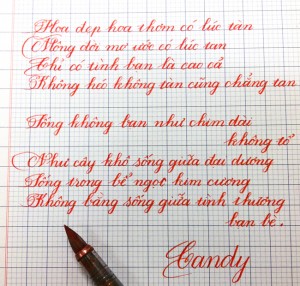 Hoa đẹp hoa thơm có lúc tàn
Mộng đời mơ ước có lúc tan
Chỉ có tình bạn là cao cả
Không héo không tàn cũng chẳng tan
Sống không bạn như chim dai
không tổ
Như cây khô sống giữa đại dương
Sống trong bể ngọc kim cương
Không bằng sống giữa tình thương
bạn bè.
Candy